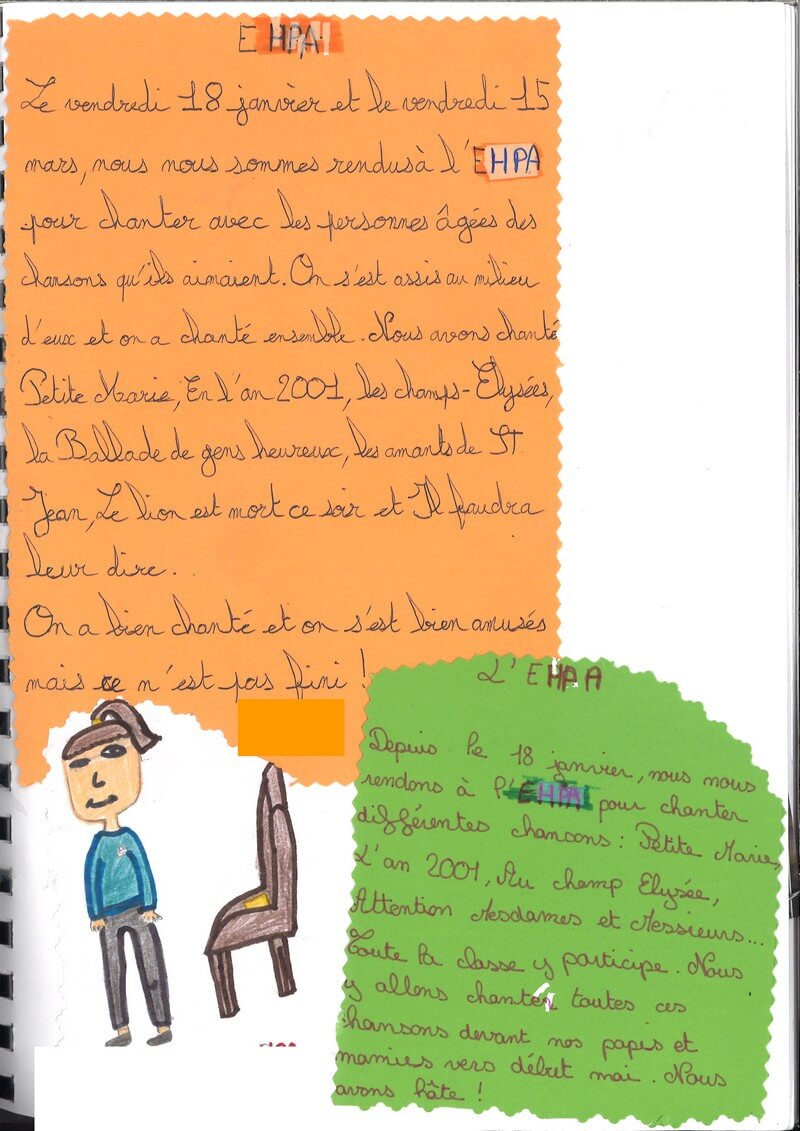 EHPA
Le vendredi 18 janvier et le vendredi 15
mars, nous nous sommes rendus à l'EHPA
pour chanter avec les personnes âgées des
chansons qu'ils aimaient. On s'est assis au milieu
d'eux et on a chanté ensemble. Nous avons chanté
Petite Marie, En l'an 2001, les champs-Elysées,
la Ballade de gens heureux, les amants de St
Jean, Le lion est mort ce soir et Il faudra
leur dire.
On a bien chanté et on s'est bien amusés
mais ce n'est pas fini !
L'EHPA
Depuis le 18 janvier, nous nous
rendons à l'EHPA pour chanter
différentes chansons : Petite Marie,
L'an 2001, Au champ Elysée,
Attention Mesdames et Messieurs...
Toute la classe y participe. Nous
y allons chanter toutes ces
chansons devant nos papis et
mamies vers début mai. Nous
avons hâte !